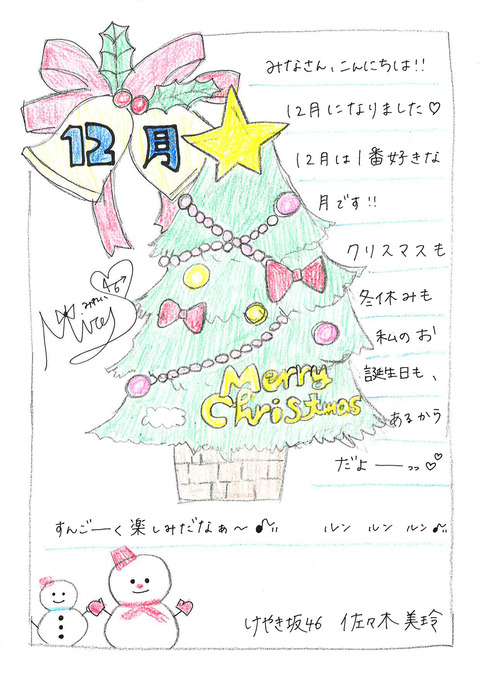 みなさん、こんにちは!!
12月
12月になりました♡
12月は1番好きな
月です!!
クリスマスも
冬休みも
私のお
誕生日も、
あるから
だよーーっっ♡♡
Merry
Christmas
すんごーく楽しみだなぁ〜♪ ルン ルン ルン♪
けやき坂46 佐々木 美玲